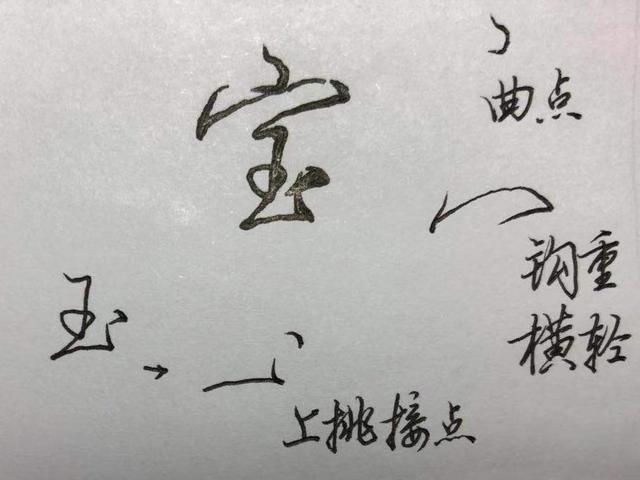 宝
曲点
钩重
横轻
玉
→
上挑接点